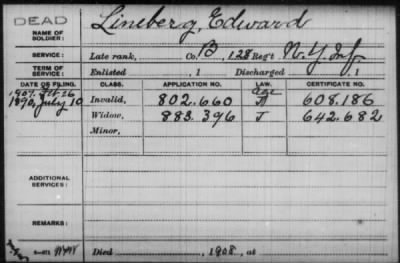 DEAD
NAME OF SOLDIER: Lineberg, Edward
SERVICE: Late rank, Co. B, 128 Reg't N.Y. Inf.
TERM OF SERVICE: Enlisted , 1 Discharged , 1
DATE OF FILING. CLASS. APPLICATION NO. LAW. CERTIFICATE NO.
1907, Feb 26 Age
1890, July 10 Invalid, 802.660 608.186
Widow, 883.396 J 642.682
Minor,
ADDITIONAL SERVICES:
REMARKS:
Died , 1908, at